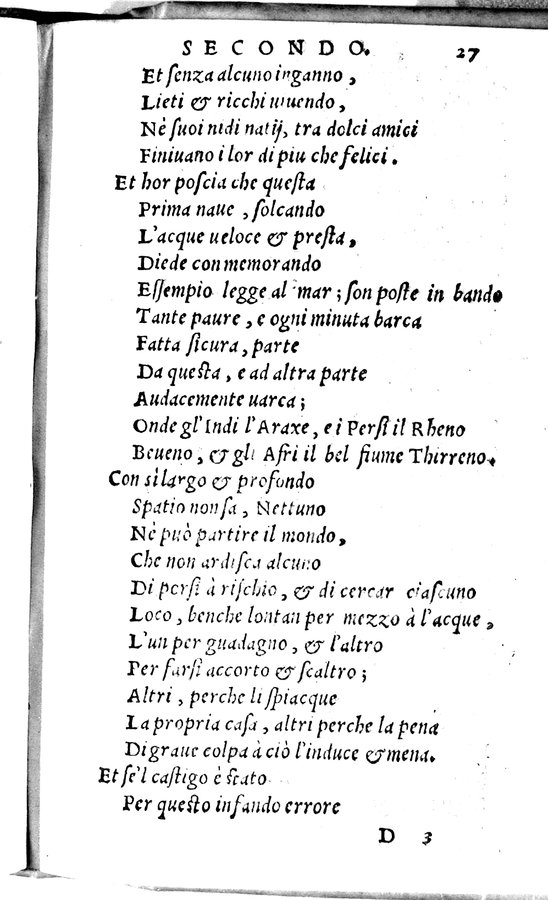 SECONDO. 27
Et ſenza alcuno inganno,
Lieti & ricchi uiuendo,
Nè ſuoi nidi natij, tra dolci amici
Finiuano i lor di piu che felici.
Et hor poſcia che queſta
Prima naue, ſolcando
L'acque ueloce & preſta,
Diede con memorando
Eſſempio legge al mar; ſon poſte in bando
Tante paure, e ogni minuta barca
Fatta ſicura, parte
Da queſta, e ad altra parte
Audacemente uarca;
Onde gl'Indi l'Araxe, e i Perſi il Rheno
Beueno, & gli Afri il bel fiume Thirreno.
Con sì largo & profondo
Spatio non ſa, Nettuno
Nè può partire il mondo,
Che non ardiſca alcuno
Di porſi à riſchio, & di cercar ciaſcuno
Loco, benche lontan per mezzo à l'acque,
L'un per guadagno, & l'altro
Per farſi accorto & ſcaltro;
Altri, perche li ſpiacque
La propria caſa, altri perche la pena
Di graue colpa à ciò l'induce & mena.
Et ſe'l caſtigo è ſtato
Per queſto infando errore
D 3